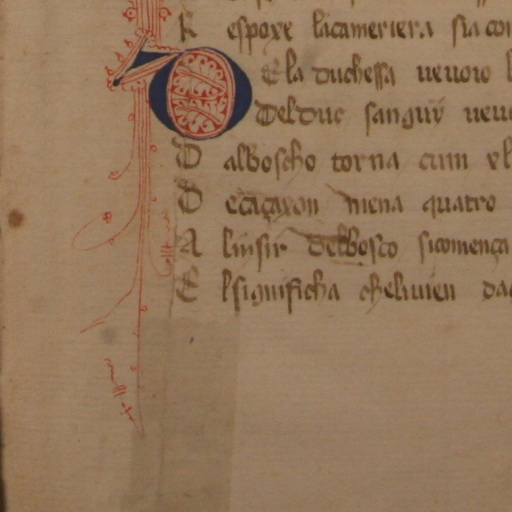 R espoxe lacameriera sia con
D E la duchessa uevoio
Delduc sanguy uevo
D alboscho torna cum el
D ecaçaxon mena quatro
A linsir delbosco sicomença
E lsignificha cheliuien da